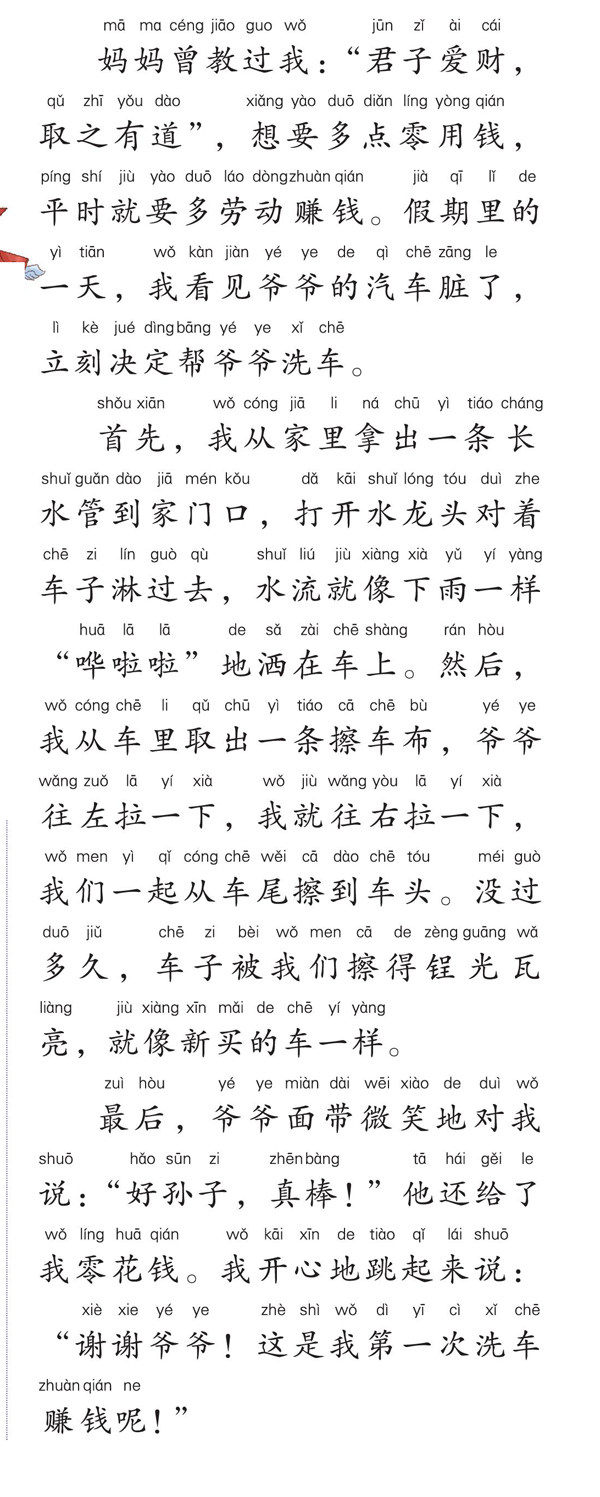 mā ma céng jiāo guo wǒ jūn zǐ ài cái
妈妈曾教过我：“君子爱财，
qǔ zhī yǒu dào xiǎng yào duō diǎn líng yòng qián
取之有道”，想要多点零用钱，
píng shí jiù yào duō láo dòng zhuàn qián jià qī lǐ de
平时就要多劳动赚钱。假期里的
yì tiān wǒ kàn jiàn yé ye de qì chē zāng le
一天，我看见爷爷的汽车脏了，
lì kè jué dìng bāng yé ye xǐ chē
立刻决定帮爷爷洗车。
shǒu xiān wǒ cóng jiā li ná chū yì tiáo cháng
首先，我从家里拿出一条长
shuǐ guǎn dào jiā mén kǒu dǎ kāi shuǐ lóng tóu duì zhe
水管到家门口，打开水龙头对着
chē zi lín guò qù shuǐ liú jiù xiàng xià yǔ yí yàng
车子淋过去，水流就像下雨一样
huā lā lā de sǎ zài chē shàng rán hòu
“哗啦啦”地洒在车上。然后，
wǒ cóng chē li qǔ chū yì tiáo cā chē bù yé ye
我从车里取出一条擦车布，爷爷
wǎng zuǒ lā yí xià wǒ jiù wǎng yòu lā yí xià
往左拉一下，我就往右拉一下，
wǒ men yì qǐ cóng chē wěi cā dào chē tóu méi guò
我们一起从车尾擦到车头。没过
duō jiǔ chē zi bèi wǒ men cā de zèng guāng wǎ
多久，车子被我们擦得锃光瓦
liàng jiù xiàng xīn mǎi de chē yí yàng
亮，就像新买的车一样。
zuì hòu yé ye miàn dài wēi xiào de duì wǒ
最后，爷爷面带微笑地对我
shuō hǎo sūn zi zhēn bàng tā hái gěi le
说：“好孙子，真棒！”他还给了
wǒ líng huā qián wǒ kāi xīn de tiào qǐ lái shuō
我零花钱。我开心地跳起来说：
xiè xie yé ye zhè shì wǒ dì yī cì xǐ chē
“谢谢爷爷！这是我第一次洗车
zhuàn qián ne
赚钱呢！”